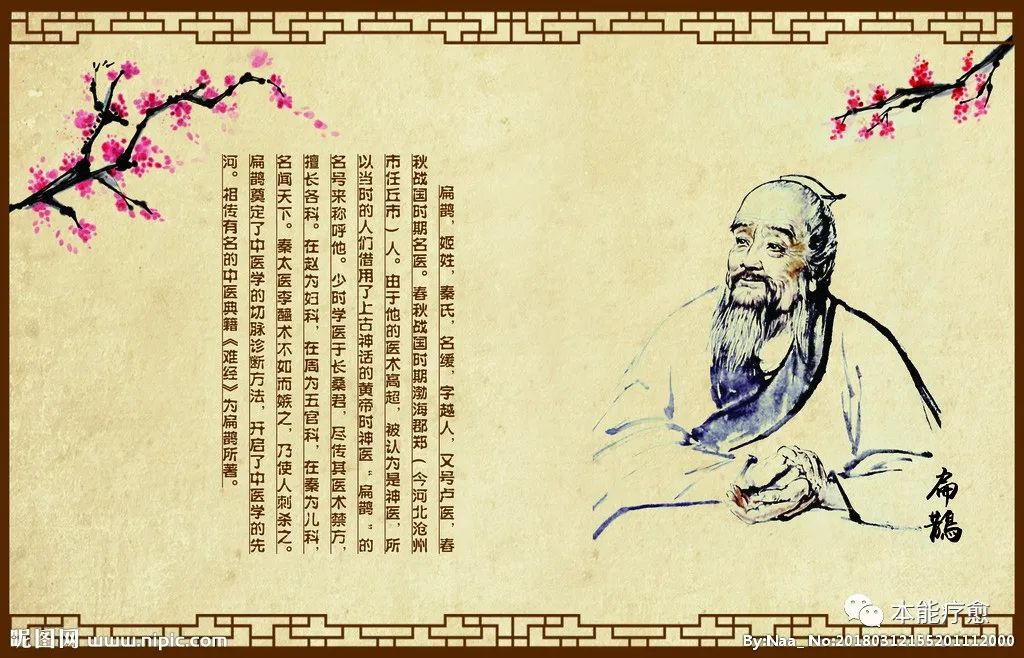 扁鹊，姬姓，秦氏，名缓，字越人，又号卢医，春
秋战国时期名医。春秋战国时期渤海郡郑（今河北沧州
市任丘市）人。由于他的医术高超，被认为是神医，所
以当时的人们借用了上古神话的黄帝时神医“扁鹊”的
名号来称呼他。少时学医于长桑君，尽传其医术禁方，
擅长各科。在赵为妇科，在周为五官科，在秦为儿科，
名闻天下。秦太医李醯术不如而嫉之，乃使人刺杀之。
扁鹊奠定了中医学的切脉诊断方法，开启了中医学的先
河。相传有名的中医典籍《难经》为扁鹊所著。
扁鹊
本能疗愈
昵图网 www.nipic.com
By:Naa_ No:20180312155201112000